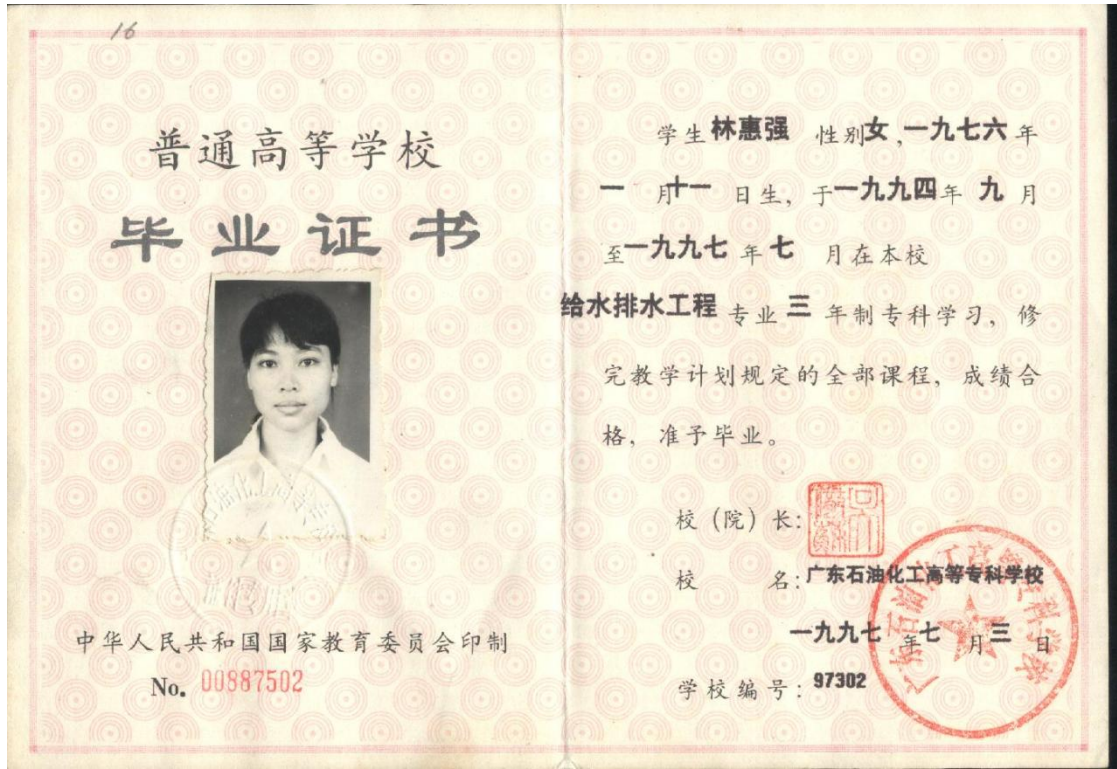 16
普通高等学校
毕业证书
中华人民共和国国家教育委员会印制
No. 00887502
学生 林惠强 性别女,一九七六年
一 月十一 日生, 于一九九四年 九 月
至一九九七 年 七 月在本校
给水排水工程 专业 三 年制专科学习, 修
完教学计划规定的全部课程, 成绩合
格, 准予毕业。
校(院)长:
校 名: 广东石油化工高等专科学校
一九九七 年 七 月 三 日
学校编号: 97302
广东石油化工高等专科学校